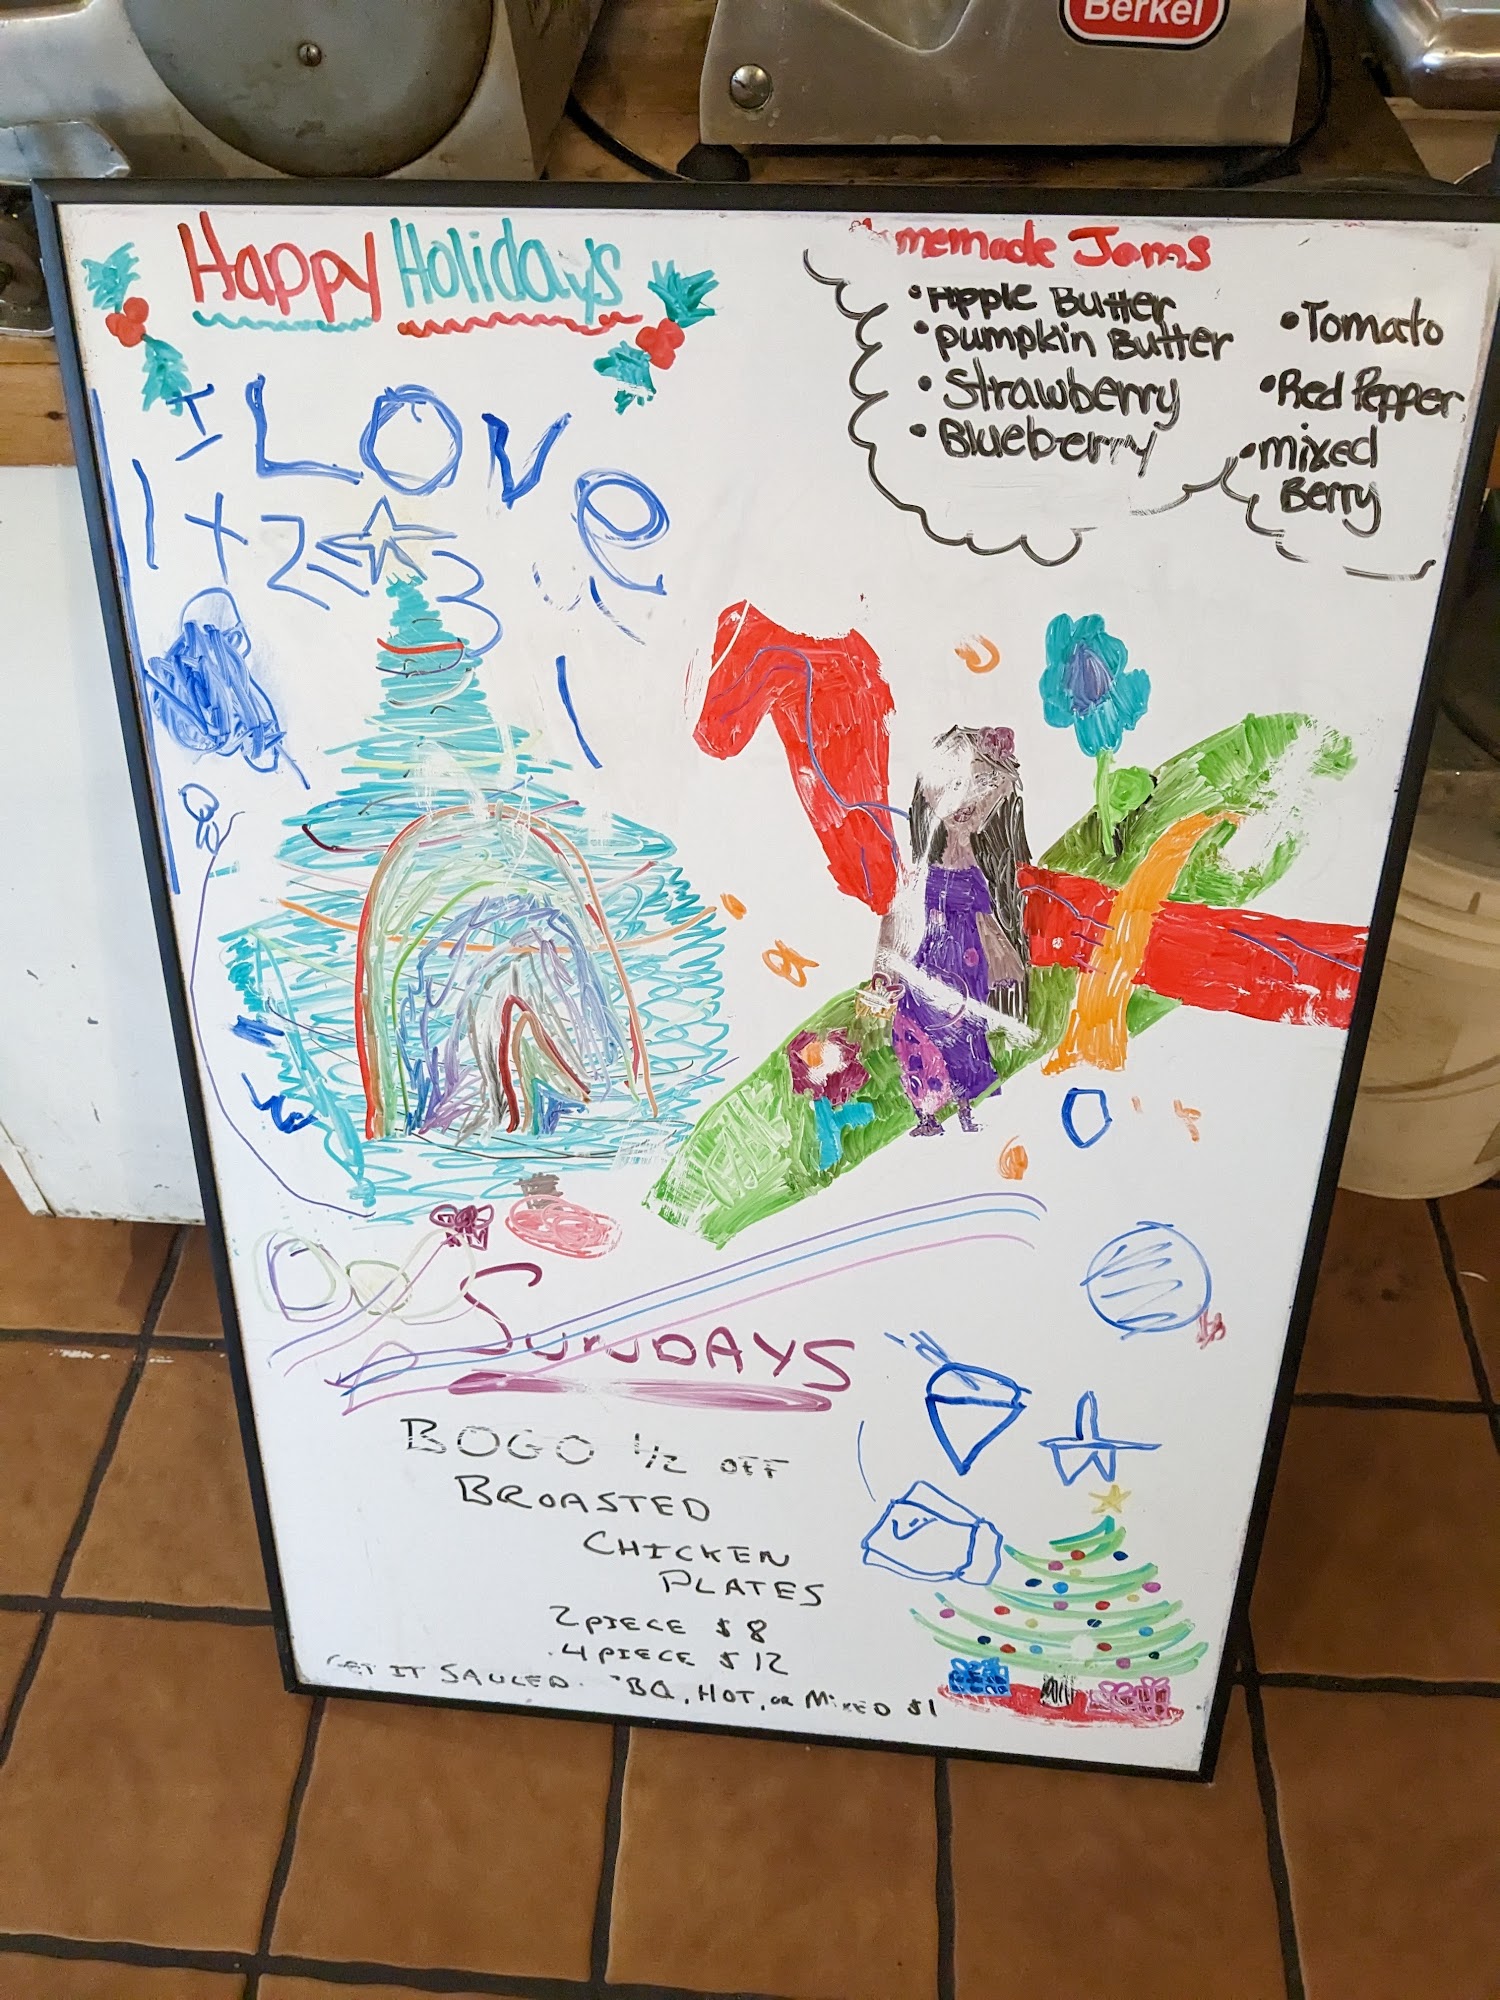 Berkel
Happy Holidays
I Love
1 + 2 3
memade Jams
• Apple Butter
• pumpkin Butter
• Strawberry
• Blueberry
• Tomato
• Red Pepper
• mixed
Berry
SUNDAYS
BOGO 1/2 OFF
BROASTED
CHICKEN
PLATES
2 PIECE $8
4 PIECE $12
GET IT SAUCED. BQ, HOT, OR MIXED $1